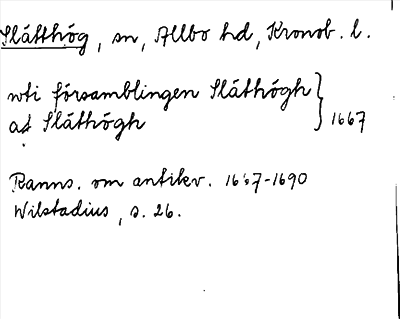 Slätthög, sn, Allbo hd, Kronob. l.
uti församblingen Släthögh
ad Släthögh } 1667
Ranns. om antikv. 1667-1690
Wilstadius, s. 26.